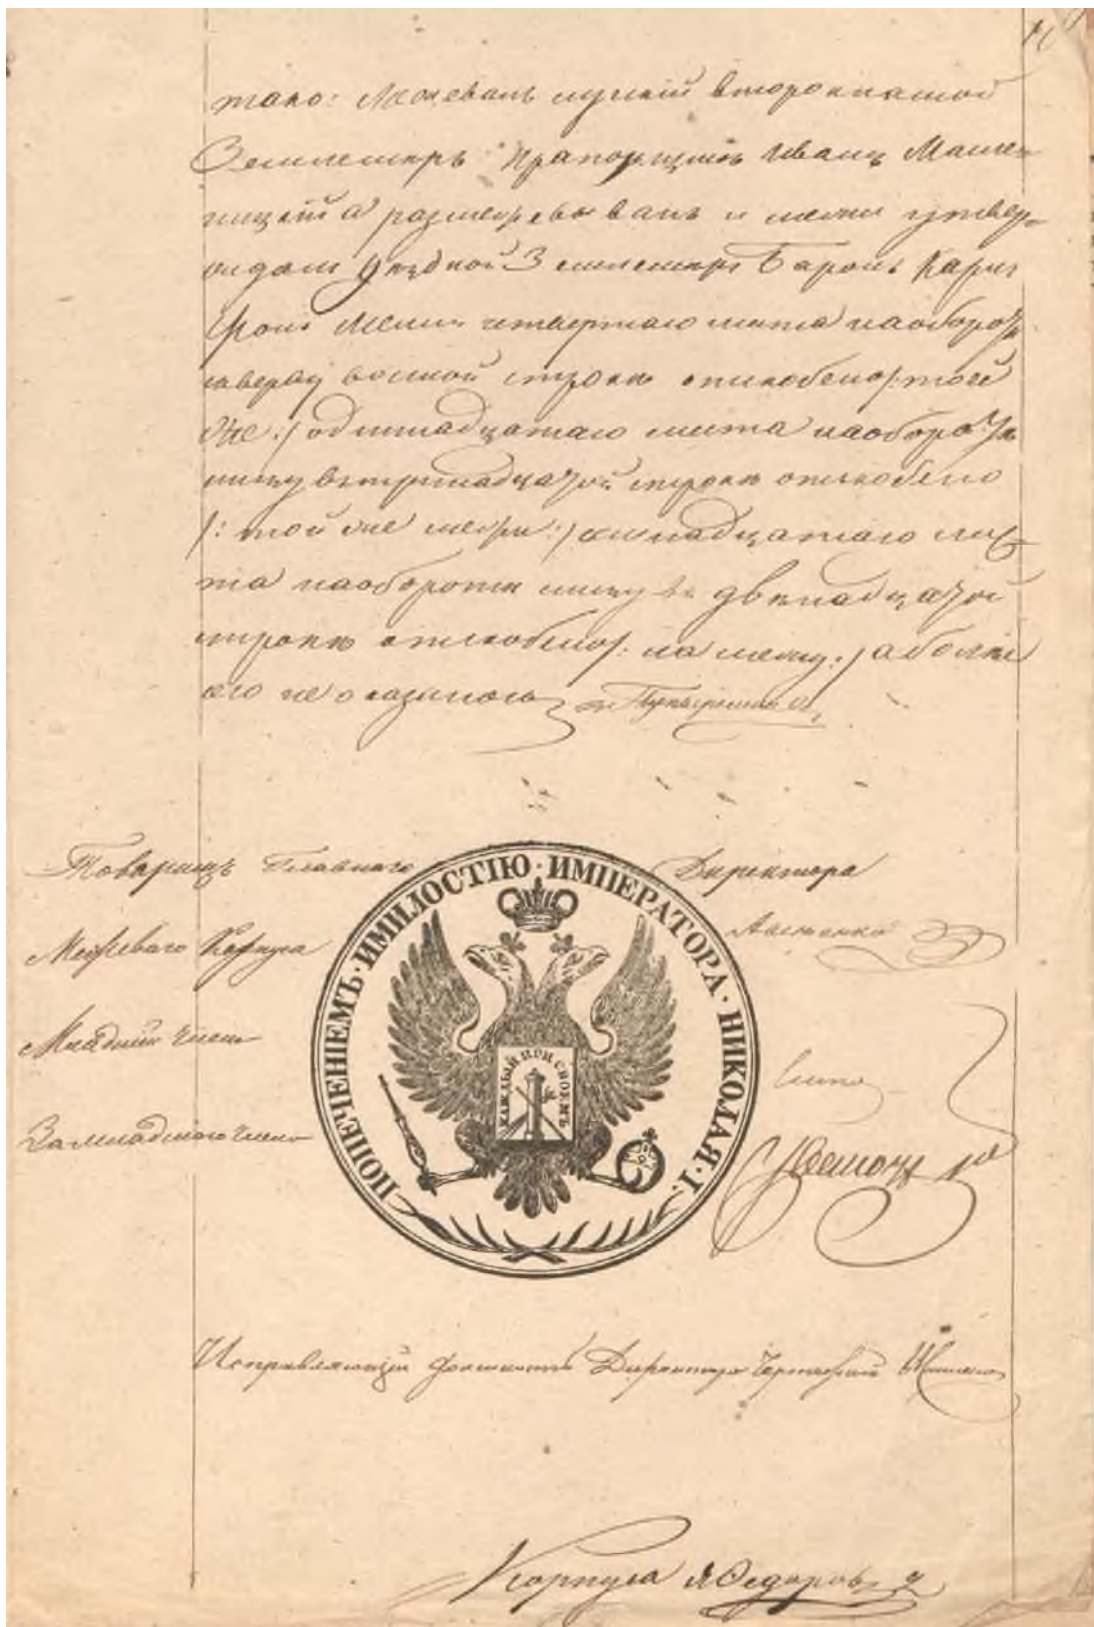 тако: Межевалъ луцкій второклассной
Землемеръ Прапорщикъ Иванъ
а размежевывалъ и межи утвер-
ждалъ Уездной Землемеръ Баронъ Карлъ
Фонъ четвертаго листа наоборотѣ
въ осмой строкѣ отскоблено /: той
же :/ одиннадцатаго листа наоборотѣ
внизу въ тринадцатой строкѣ отскоблено
/: той же межи :/ листа
наоборотѣ внизу въ двенадцатой
строкѣ отскоблено /: на межу :/ а болѣе
его не оказалось
Товарищъ Главнаго Директора
Межеваго Корпуса
Младшій Членъ
За младшаго члена
ПОПЕЧЕНІЕМЪ·ИМИЛОСТІЮ·ИМПЕРАТОРА·НИКОЛАЯ·I·
КАЖДЫЙ ПРИ СВОЕМЪ
Исправляющій должность Директора Чертежной
Корпуса Федоровъ